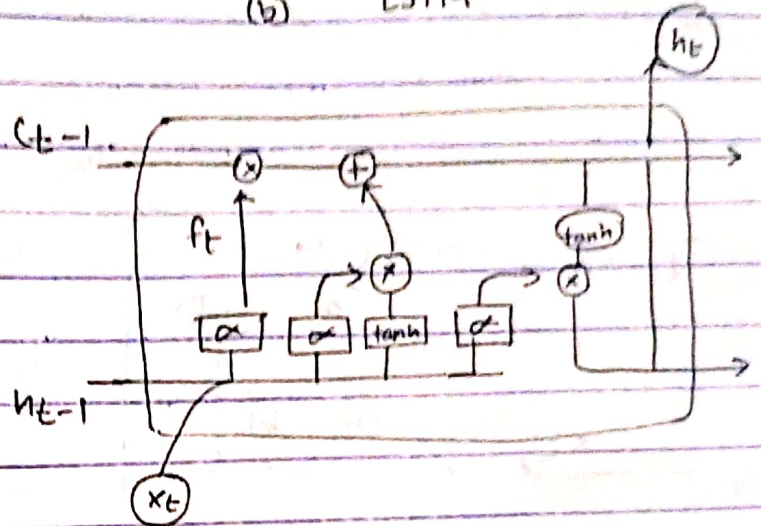 (b) LSTM
ht
Ct-1
x +
tanh
ft
x x
α α tanh α
ht-1
xt